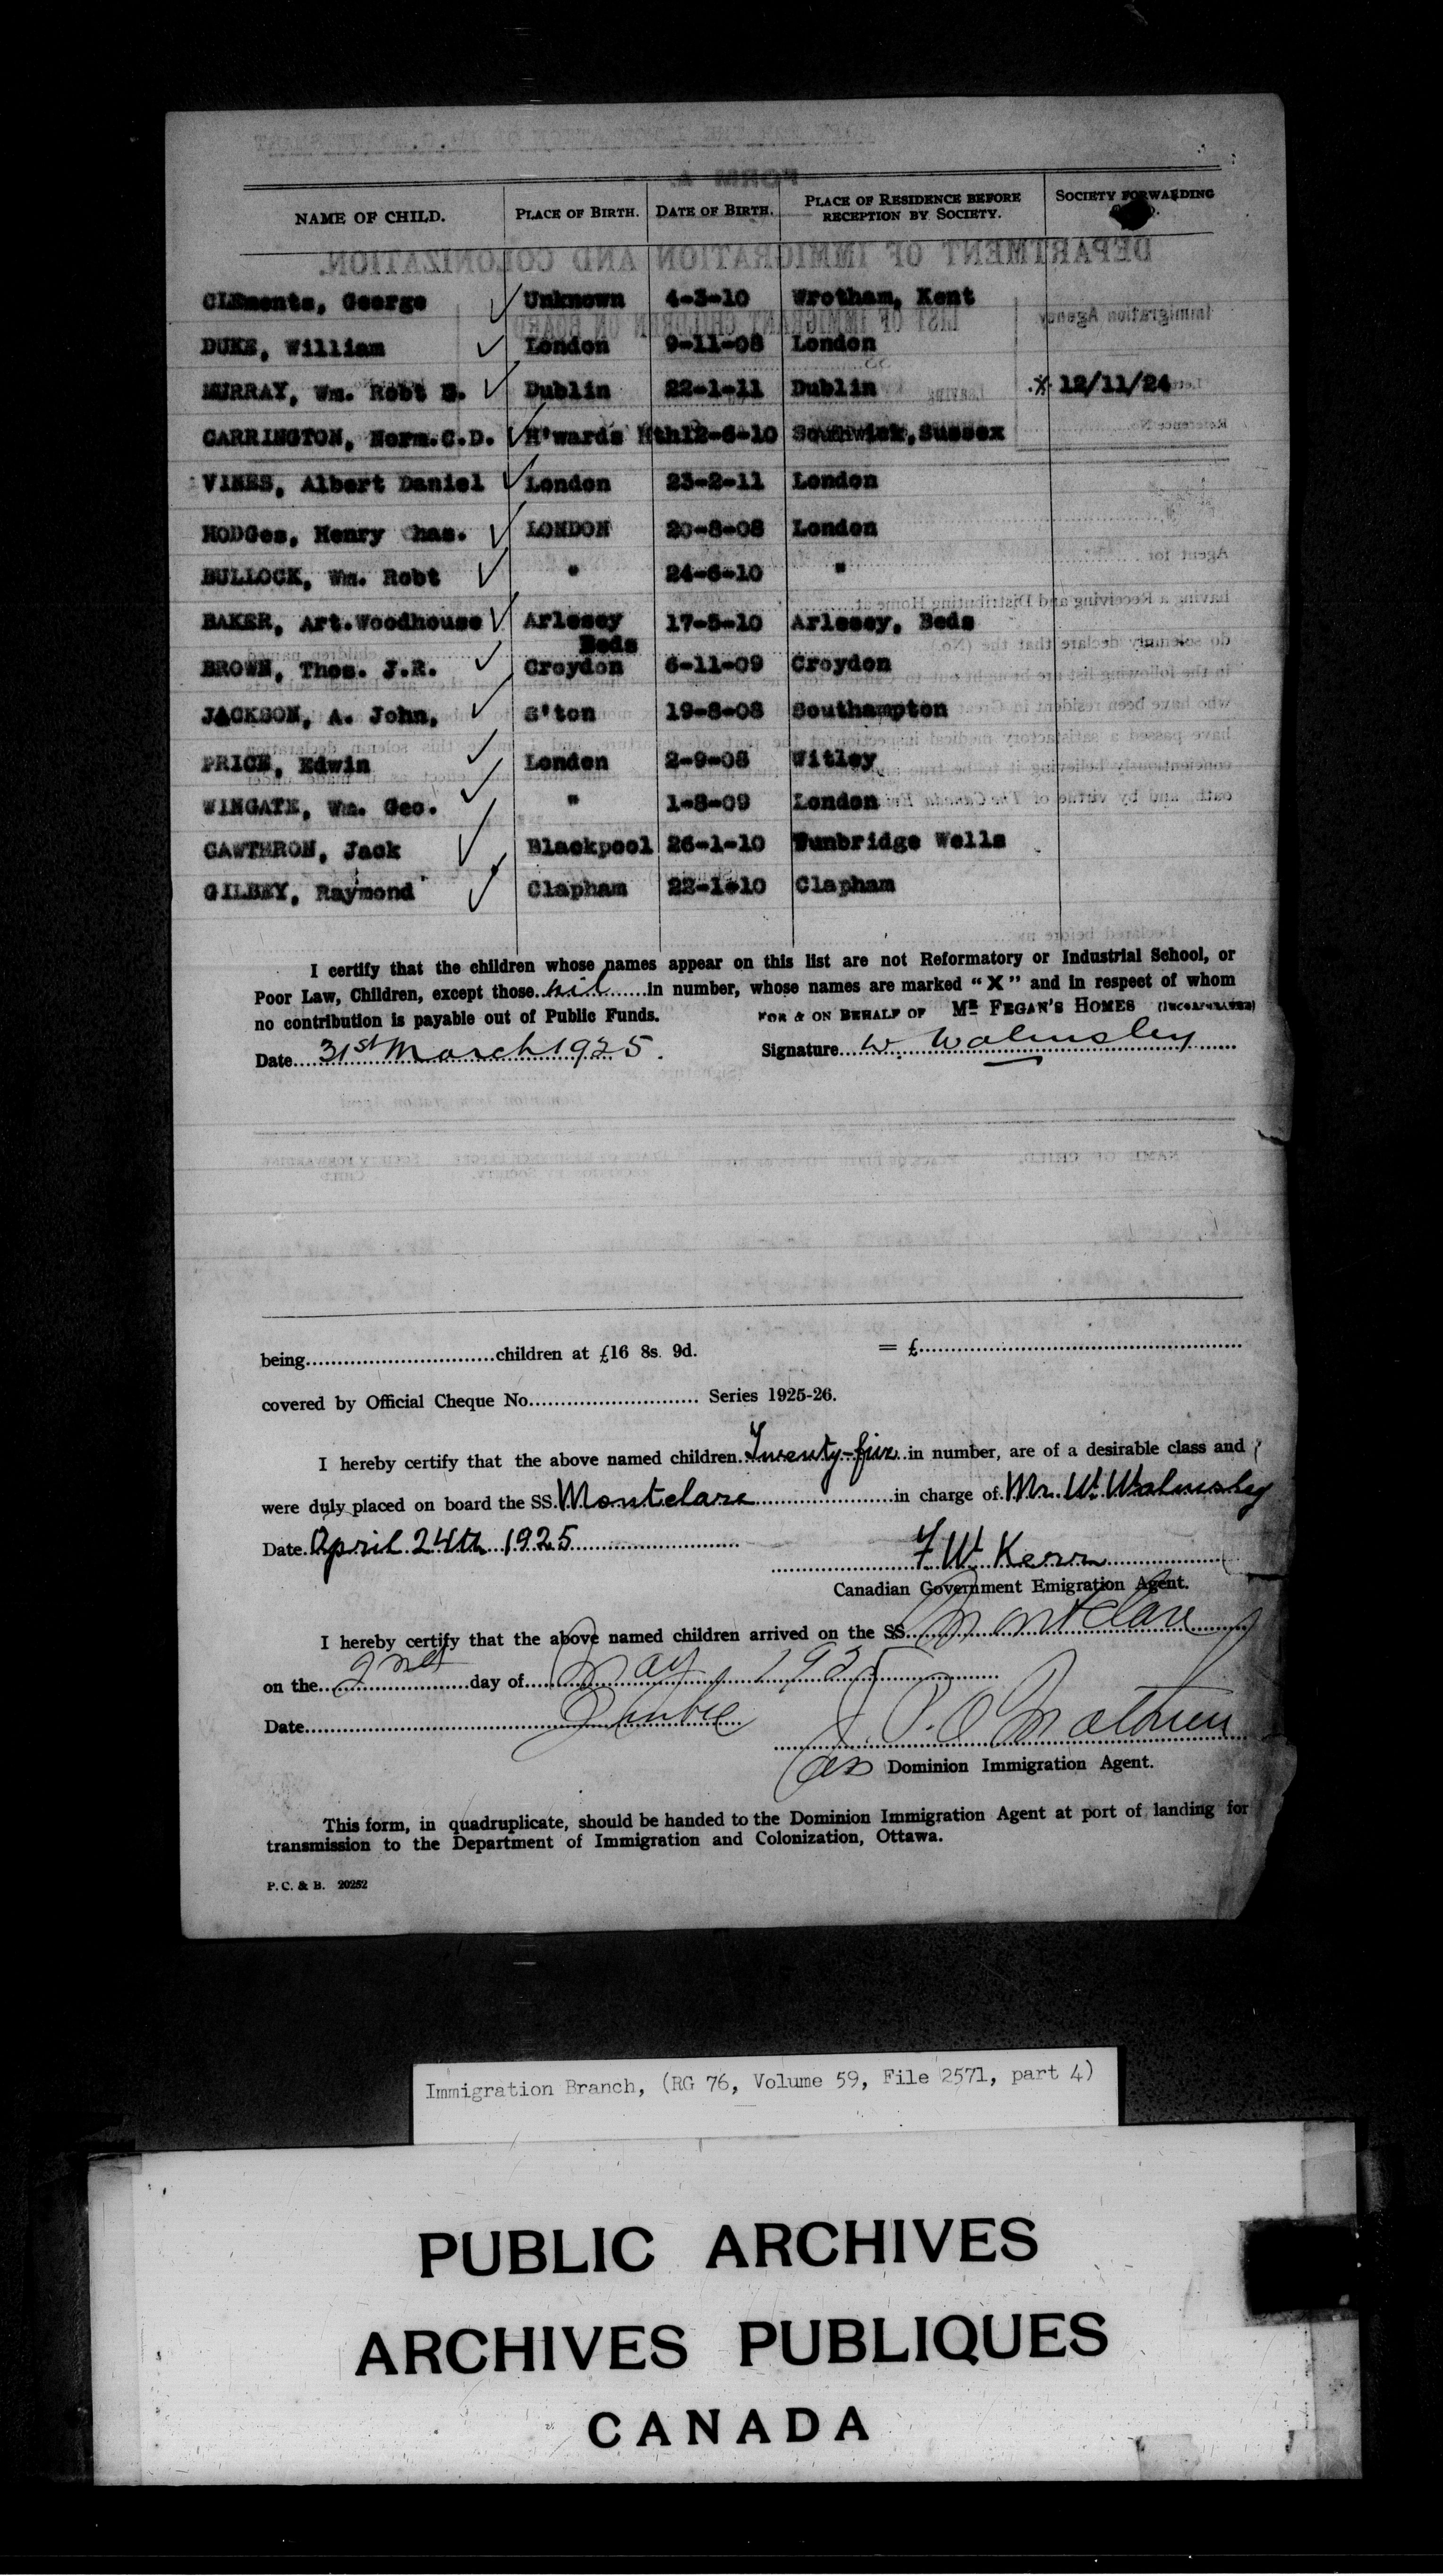 NAME OF CHILD. PLACE OF BIRTH. DATE OF BIRTH. PLACE OF RESIDENCE BEFORE RECEPTION BY SOCIETY. SOCIETY FORWARDING
CLEments, George ✓ Unknown 4-3-10 Wrotham, Kent
DUKE, William ✓ London 9-11-08 London
MURRAY, Wm. Robt ✓ Dublin 22-1-11 Dublin X 12/11/24
CARRINGTON, Norm.C.D. ✓ H'wards Hth 12-6-10 Southwick, Sussex
VINES, Albert Daniel ✓ London 23-2-11 London
HODGes, Henry Chas. ✓ LONDON 20-8-08 London
BULLOCK, Wm. Robt ✓ " 24-6-10 "
BAKER, Art.Woodhouse ✓ Arlesey Beds 17-5-10 Arlesey, Beds
BROWN, Thos. J.R. ✓ Croydon 6-11-09 Croydon
JACKSON, A. John, ✓ S'ton 19-8-08 Southampton
PRICE, Edwin ✓ London 2-9-08 Witley
WINGATE, Wm. Geo. ✓ " 1-8-09 London
CAWTHRON, Jack ✓ Blackpool 26-1-10 Tunbridge Wells
GILBEY, Raymond ✓ Clapham 22-1-10 Clapham
I certify that the children whose names appear on this list are not Reformatory or Industrial School, or
Poor Law, Children, except those nil in number, whose names are marked "X" and in respect of whom
no contribution is payable out of Public Funds. FOR & ON BEHALF OF MR FEGAN'S HOMES (INCORPORATED)
Date 31st March 1925. Signature W. Walmsley
being children at £16 8s. 9d. = £
covered by Official Cheque No. Series 1925-26.
I hereby certify that the above named children Twenty-five in number, are of a desirable class and
were duly placed on board the SS. Montclare in charge of Mr. W. Walmsley
Date April 24th 1925 F W Kerr
Canadian Government Emigration Agent.
I hereby certify that the above named children arrived on the SS. Montclare
on the 2nd day of May 1925
Date Quebec
Dominion Immigration Agent.
This form, in quadruplicate, should be handed to the Dominion Immigration Agent at port of landing for
transmission to the Department of Immigration and Colonization, Ottawa.
P. C. & B. 20252
Immigration Branch, (RG 76, Volume 59, File 2571, part 4)
PUBLIC ARCHIVES
ARCHIVES PUBLIQUES
CANADA